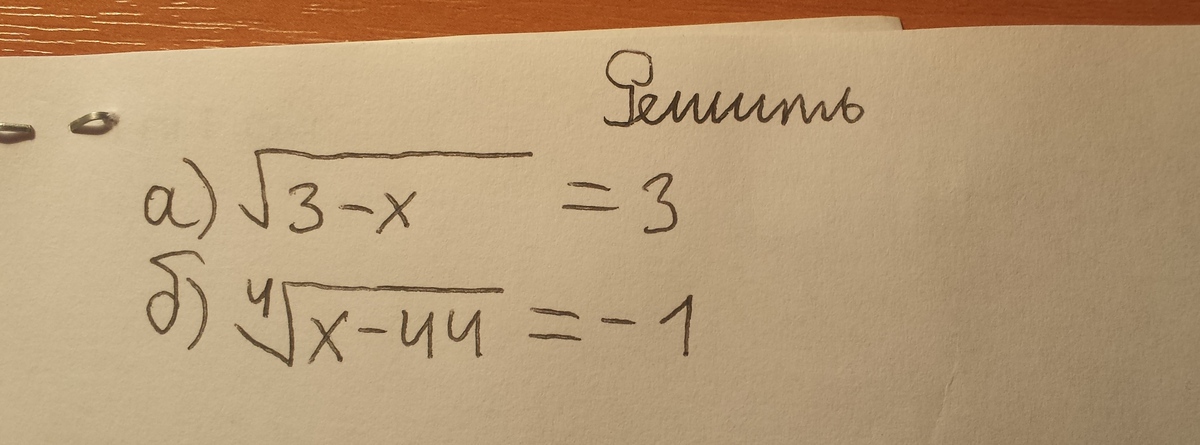 Решить
а) √3-x = 3
б) ⁴√x-44 = -1